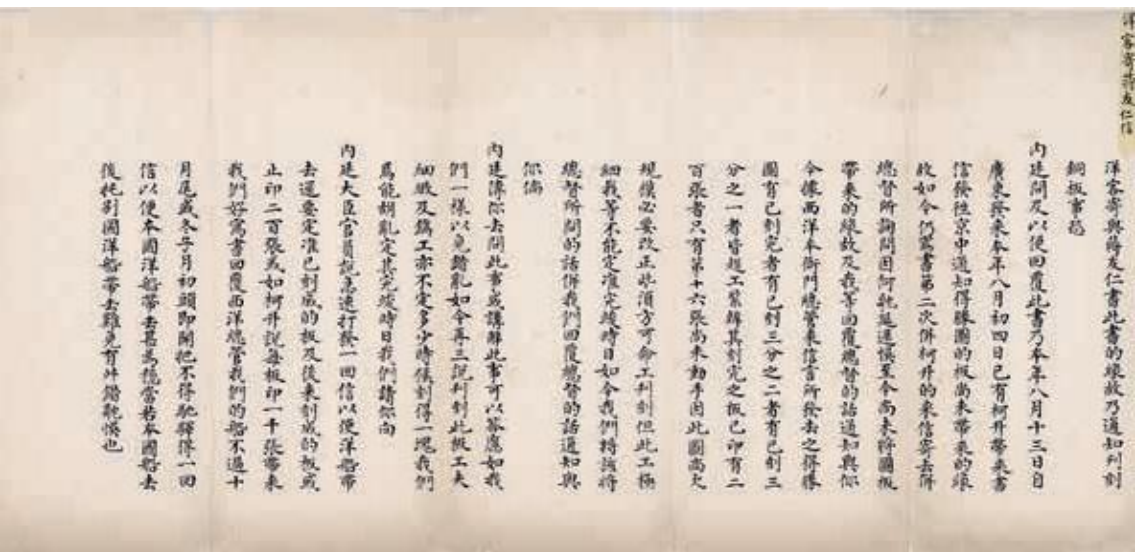 洋客寄蒋友仁信
洋客寄與蔣友仁書此書的緣故乃通知刊刻
銅板事鿌
內廷問及以便回覆此書乃本年八月十三日自
廣東發來本年八月初四日已有柯升帶來書
信發往京中通知得勝圖的板尚未帶來的緣
故如今仍寫書第二次併柯升的來信寄去併
總督所詢問因何躭延遲悞至今尚未將圖板
帶來的緣故及我等回覆總督的話通知與你
今據西洋本衙門總管來信言所發去之得勝
圖有已刻完者有已刻三分之二者有已刻三
分之一者皆趕工緊辦其刻完之板已印有二
百張者只有第十六張尚未動手因此圖尚欠
規模必要改正些須方可命工刊刻但此工極
細我等不能定准完竣時日如今我們將該將
總督所問的話併我們回覆總督的話通知與
你倘
內廷傳你去問此事或講解此事可以答應如我
們一樣以免錯亂如今再三說刊刻此板工夫
細緻及鐫工亦不定多少時候刻得一塊我們
焉能胡亂定其完竣時日我們請你向
內廷大臣官員說急速打發一回信以便洋船帶
去還要定准已刻成的板及後來刻成的板或
止印二百張或如柯升說每板印一千張帶來
我們好寫書回覆西洋總管我們的船不過十
月尾或冬子月初頭即開把不得躭驛得一回
信以便本國洋船帶去甚為穩當若本國船去
後托別國洋船帶去難免有舛錯躭悞也